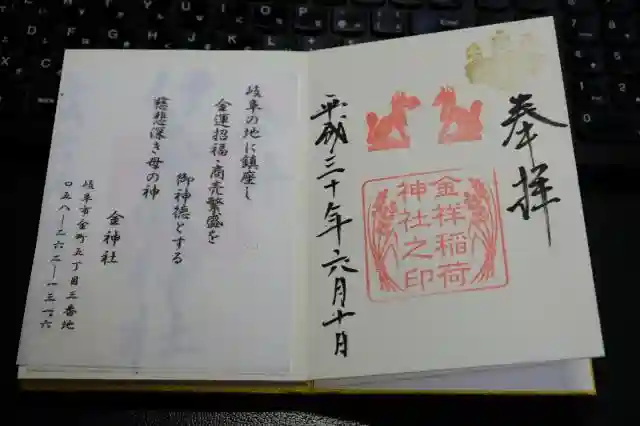 奉拝
金祥稲荷
神社之印
平成三十年六月十日
岐阜の地に鎮座し
金運招福・商売繁盛を
御神徳とする
慈悲深き母の神
金神社
岐阜市金町五丁目三番地
〇五八―二六二―一三一六